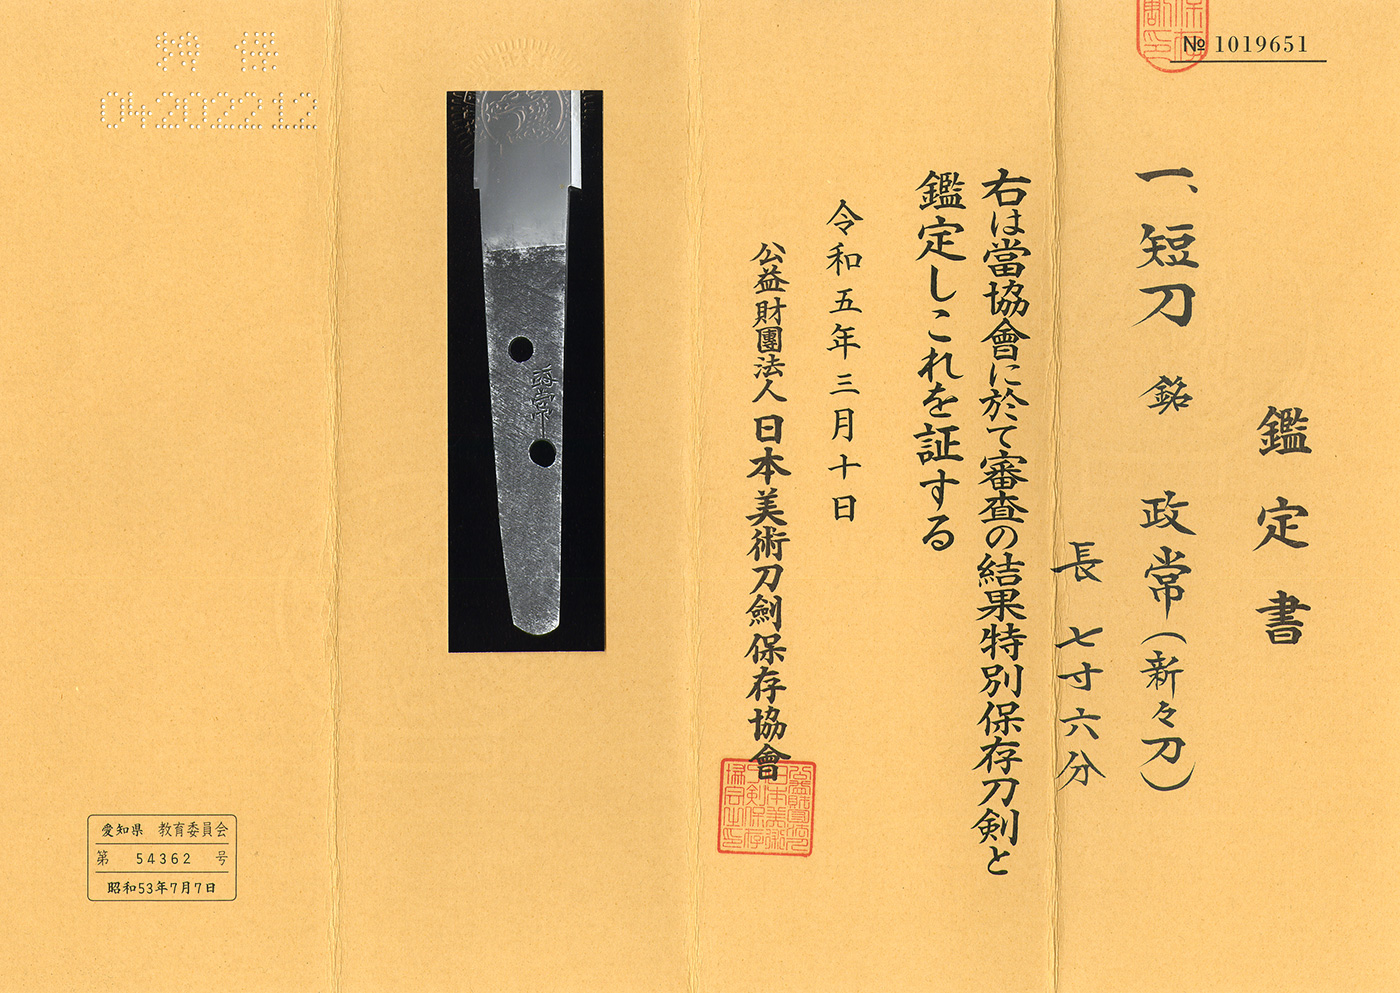 № 1019651
鑑定書
一、短刀 銘 政常(新々刀)
長 七寸六分
右は當協會に於て審査の結果特別保存刀剣と
鑑定しこれを証する
令和五年三月十日
公益財團法人 日本美術刀劍保存協會
政常
特保
04202212
愛知県 教育委員会
第 54362 号
昭和53年7月7日